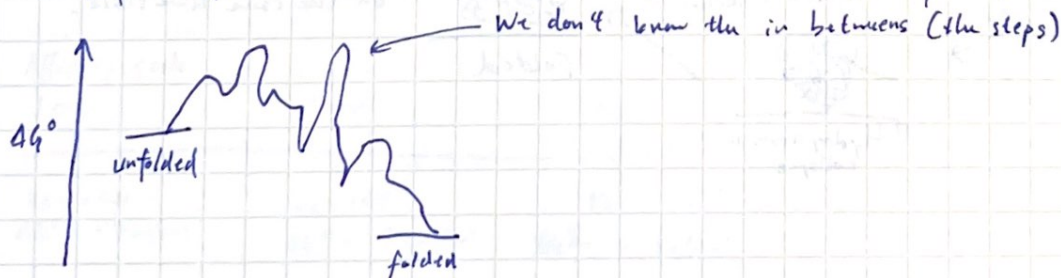 We don't know the in betweens (the steps)
ΔG°
unfolded
folded